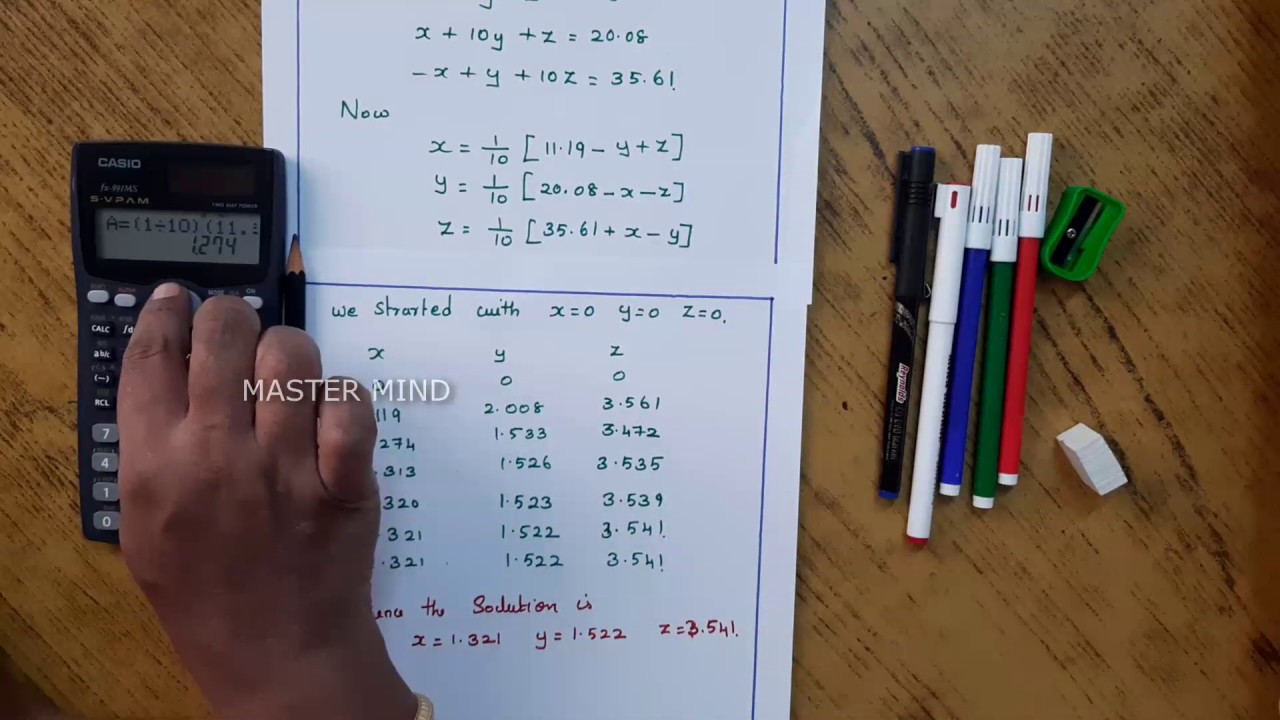 x + 10y + z = 20.08
-x + y + 10z = 35.61.
Now
x = 1/10 [11.19 - y + z]
y = 1/10 [20.08 - x - z]
z = 1/10 [35.61 + x - y]
CASIO
fx-991MS
S-V.P.A.M.
TWO WAY POWER
A=(1÷10)(11.
1.274
ON
CALC
ab/c
(-)
RCL
7
4
1
0
we strarted with x=0 y=0 z=0.
x y z
0 0
119 2.008 3.561
274 1.533 3.472
.313 1.526 3.535
320 1.523 3.539
.321 1.522 3.541.
.321 1.522 3.541
MASTER MIND
ence the Solution is
x = 1.321 y = 1.522 z = 3.541.
Reynolds